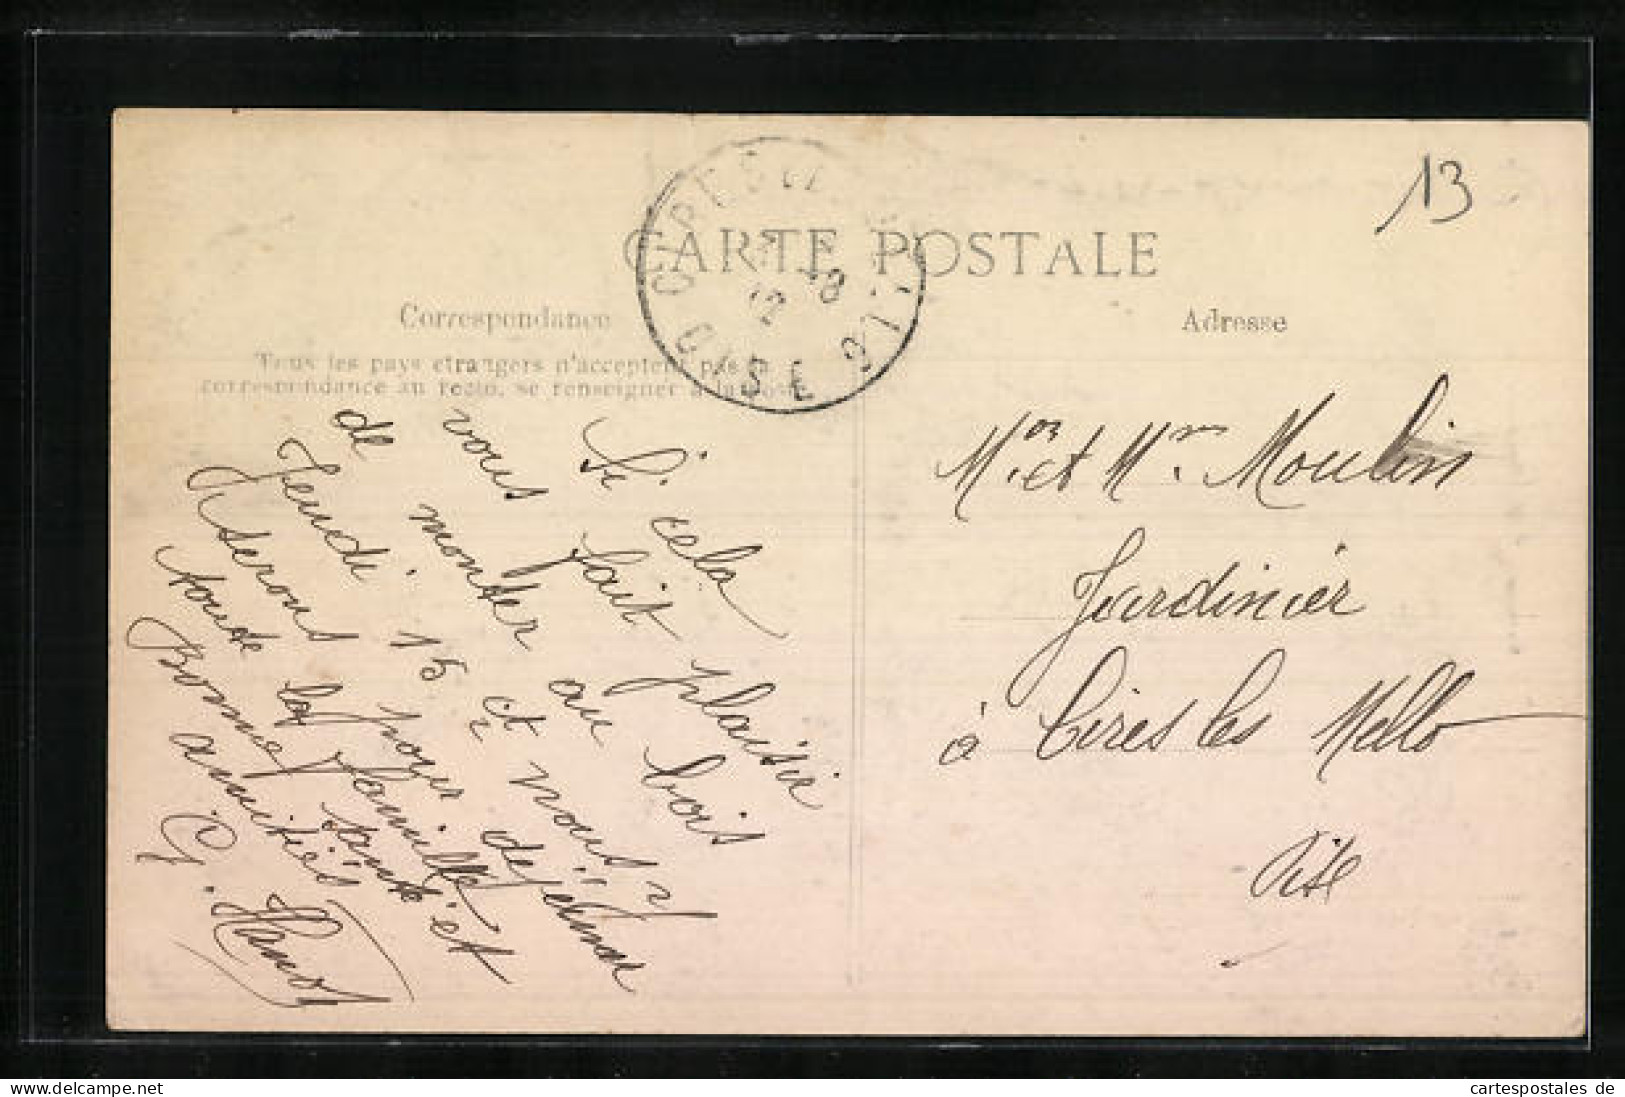 13
CARTE POSTALE
Correspondance
Adresse
Tous les pays etrangers n'acceptent pas la
correspondance au recto, se renseigner à la poste
CIRES
OISE
12
Si cela
vous fait plaisir
de monter au bois
Jeudi 15 et nous
serons
toute la déjeuner
Bonne santé et
amitiés
G. Hanot
et Mr Moulin
Jardinier
à Cires les Mello
Oise
cartespostales de